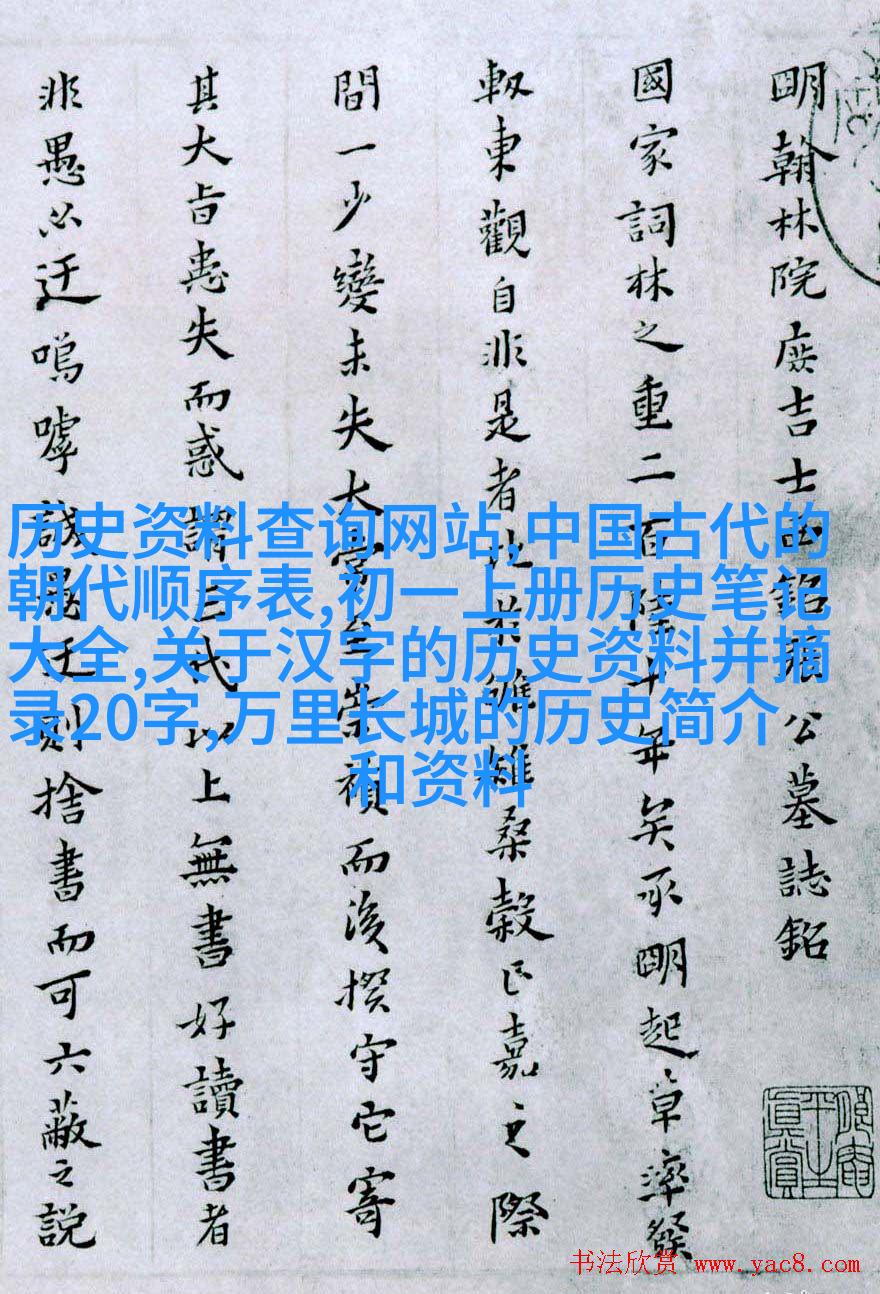 明翰林院庶吉士西銘張公墓誌銘
國家詞林之重二百餘十年矣承明起草率發
軔東觀自非是者比於雌雄桑榖正嘉之際
間一少變未失大常至崇禎而後揆守它寄
其大旨恚失而惑謂三代以上無書好讀書者
非愚必迂嗚嘑誠愚迂則捨書而可六蔽之說
历史资料查询网站,中国古代的
朝代顺序表,初一上册历史笔记
大全,关于汉字的历史资料并摘
录20字,万里长城的历史简介
和资料
书法欣赏 www.yac8.com